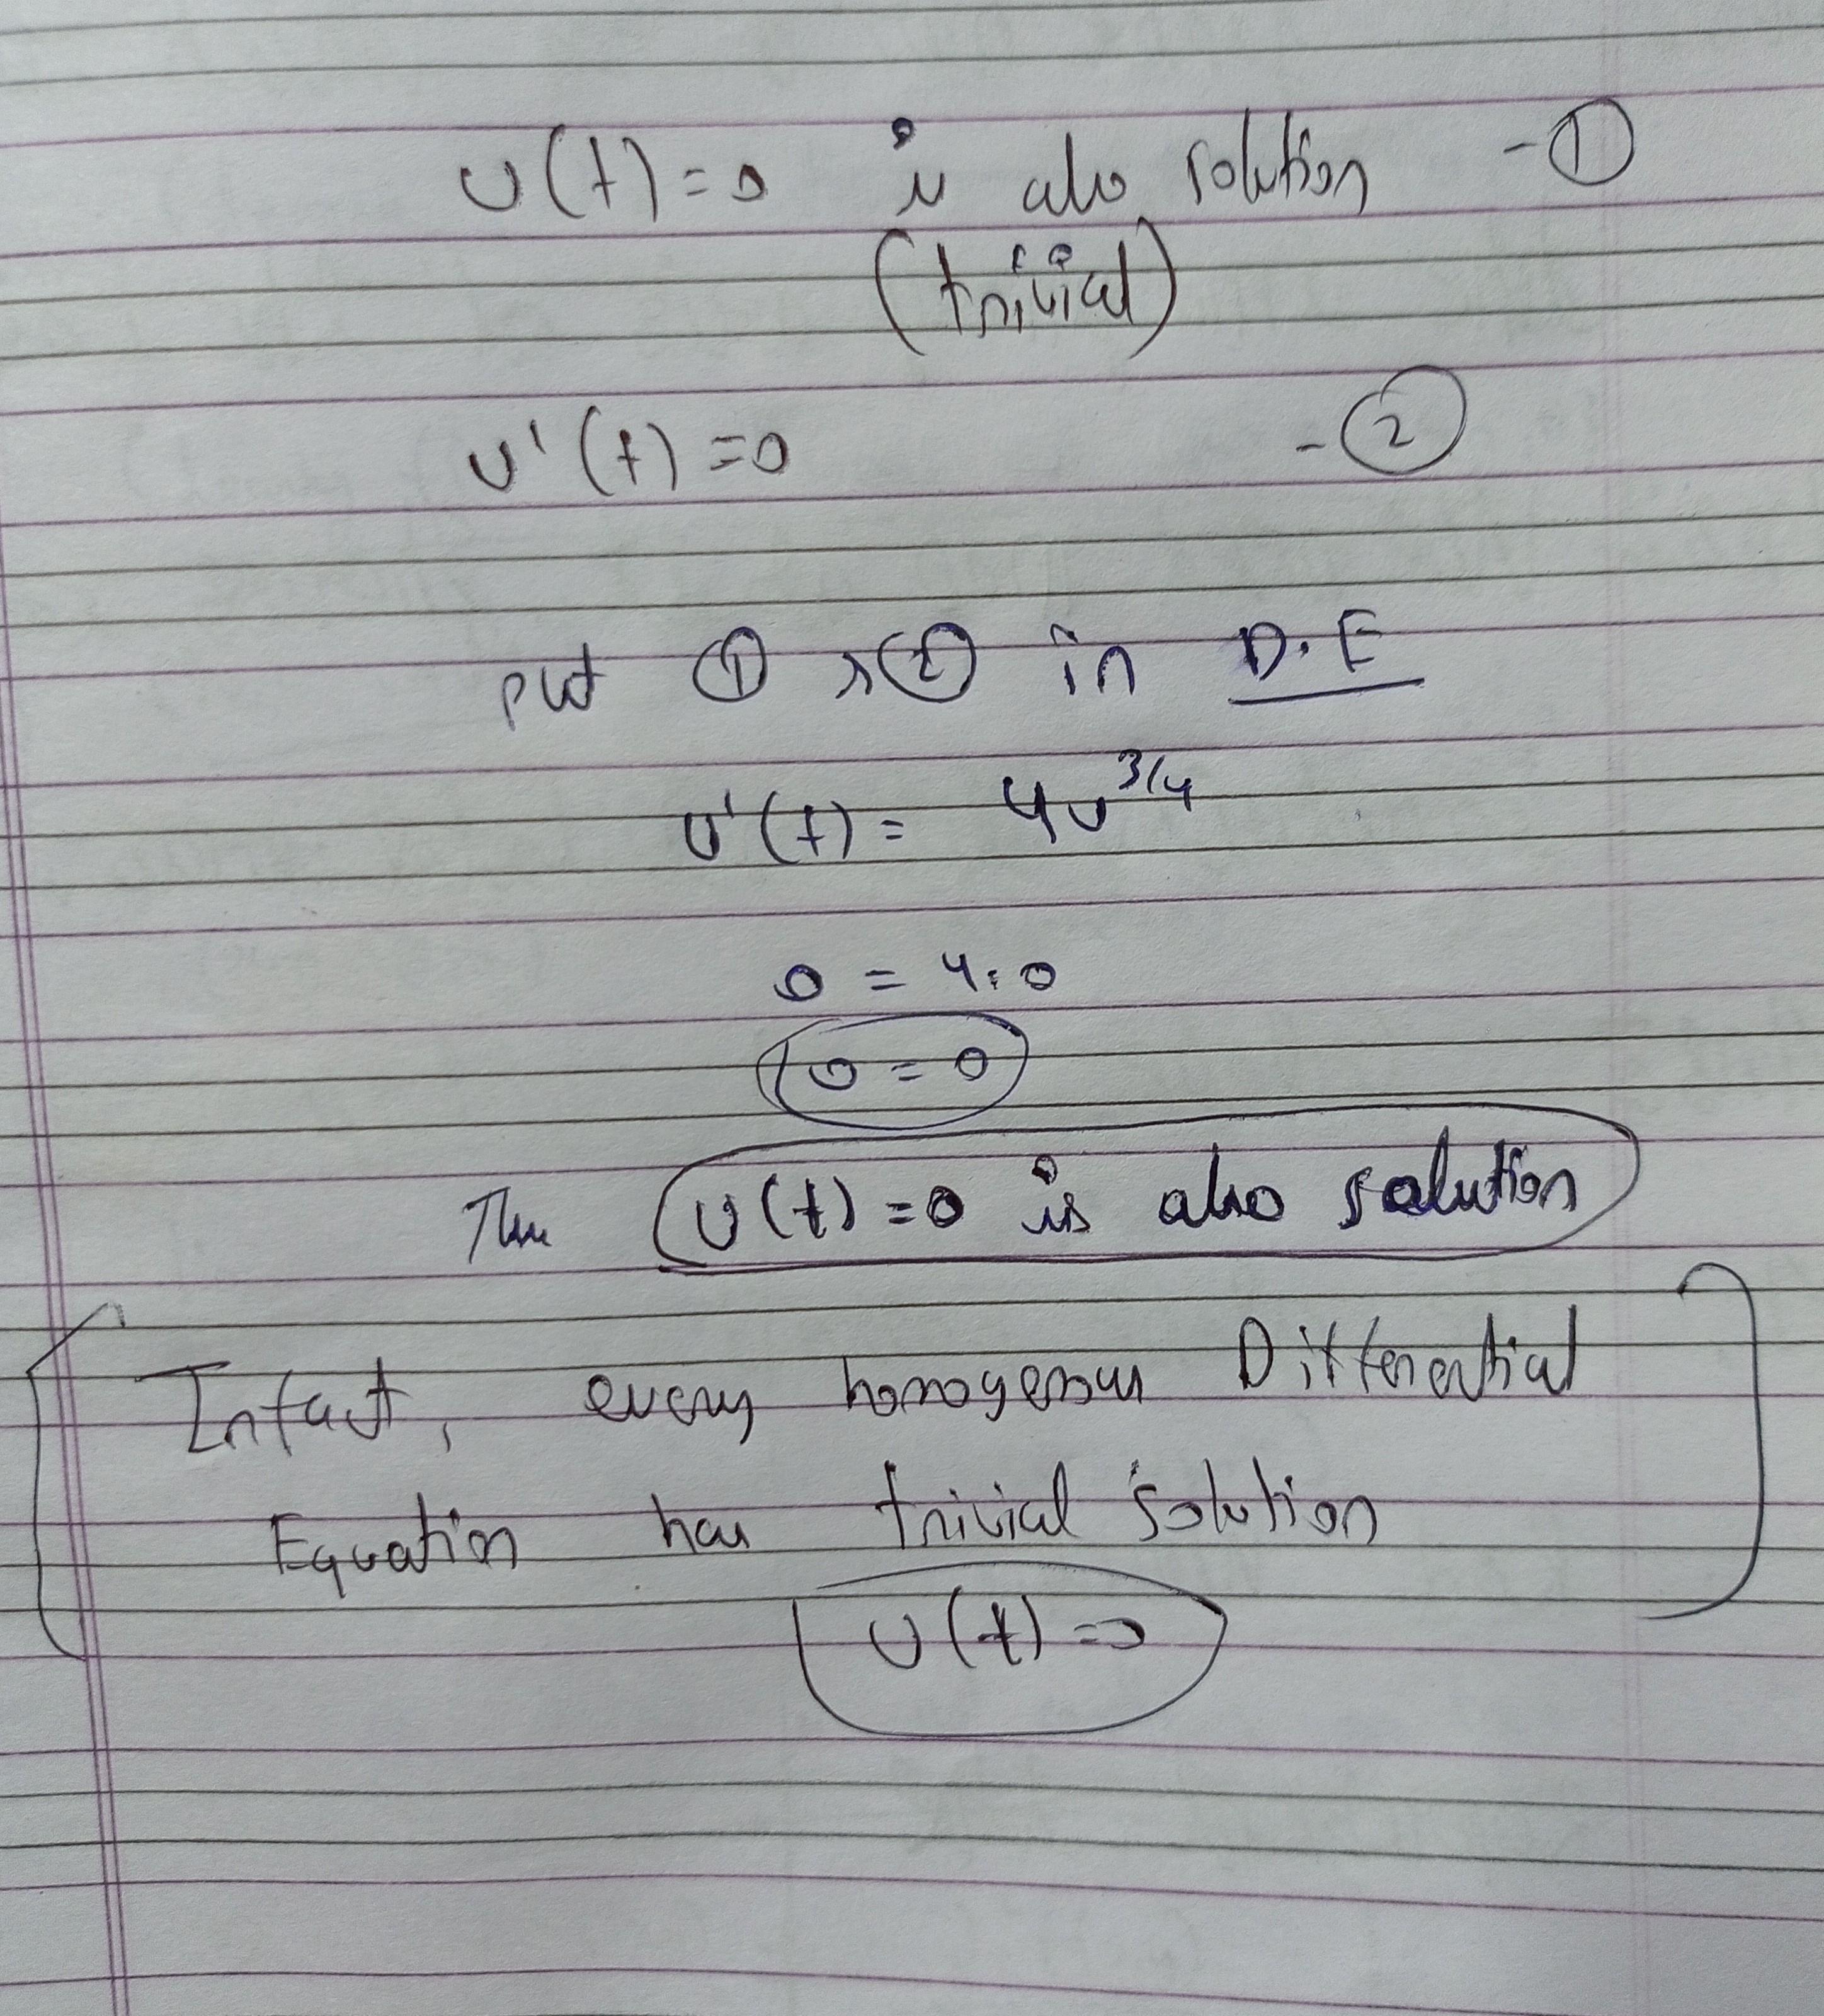 U(t)=0 is also solution -①
(trivial)
U'(t)=0 -②
put ① & ② in D.E
U'(t)= 4U^3/4
0 = 4.0
0 = 0
Thus U(t)=0 is also solution
Infact, every homogenous Differential
Equation has trivial solution
U(t)=0